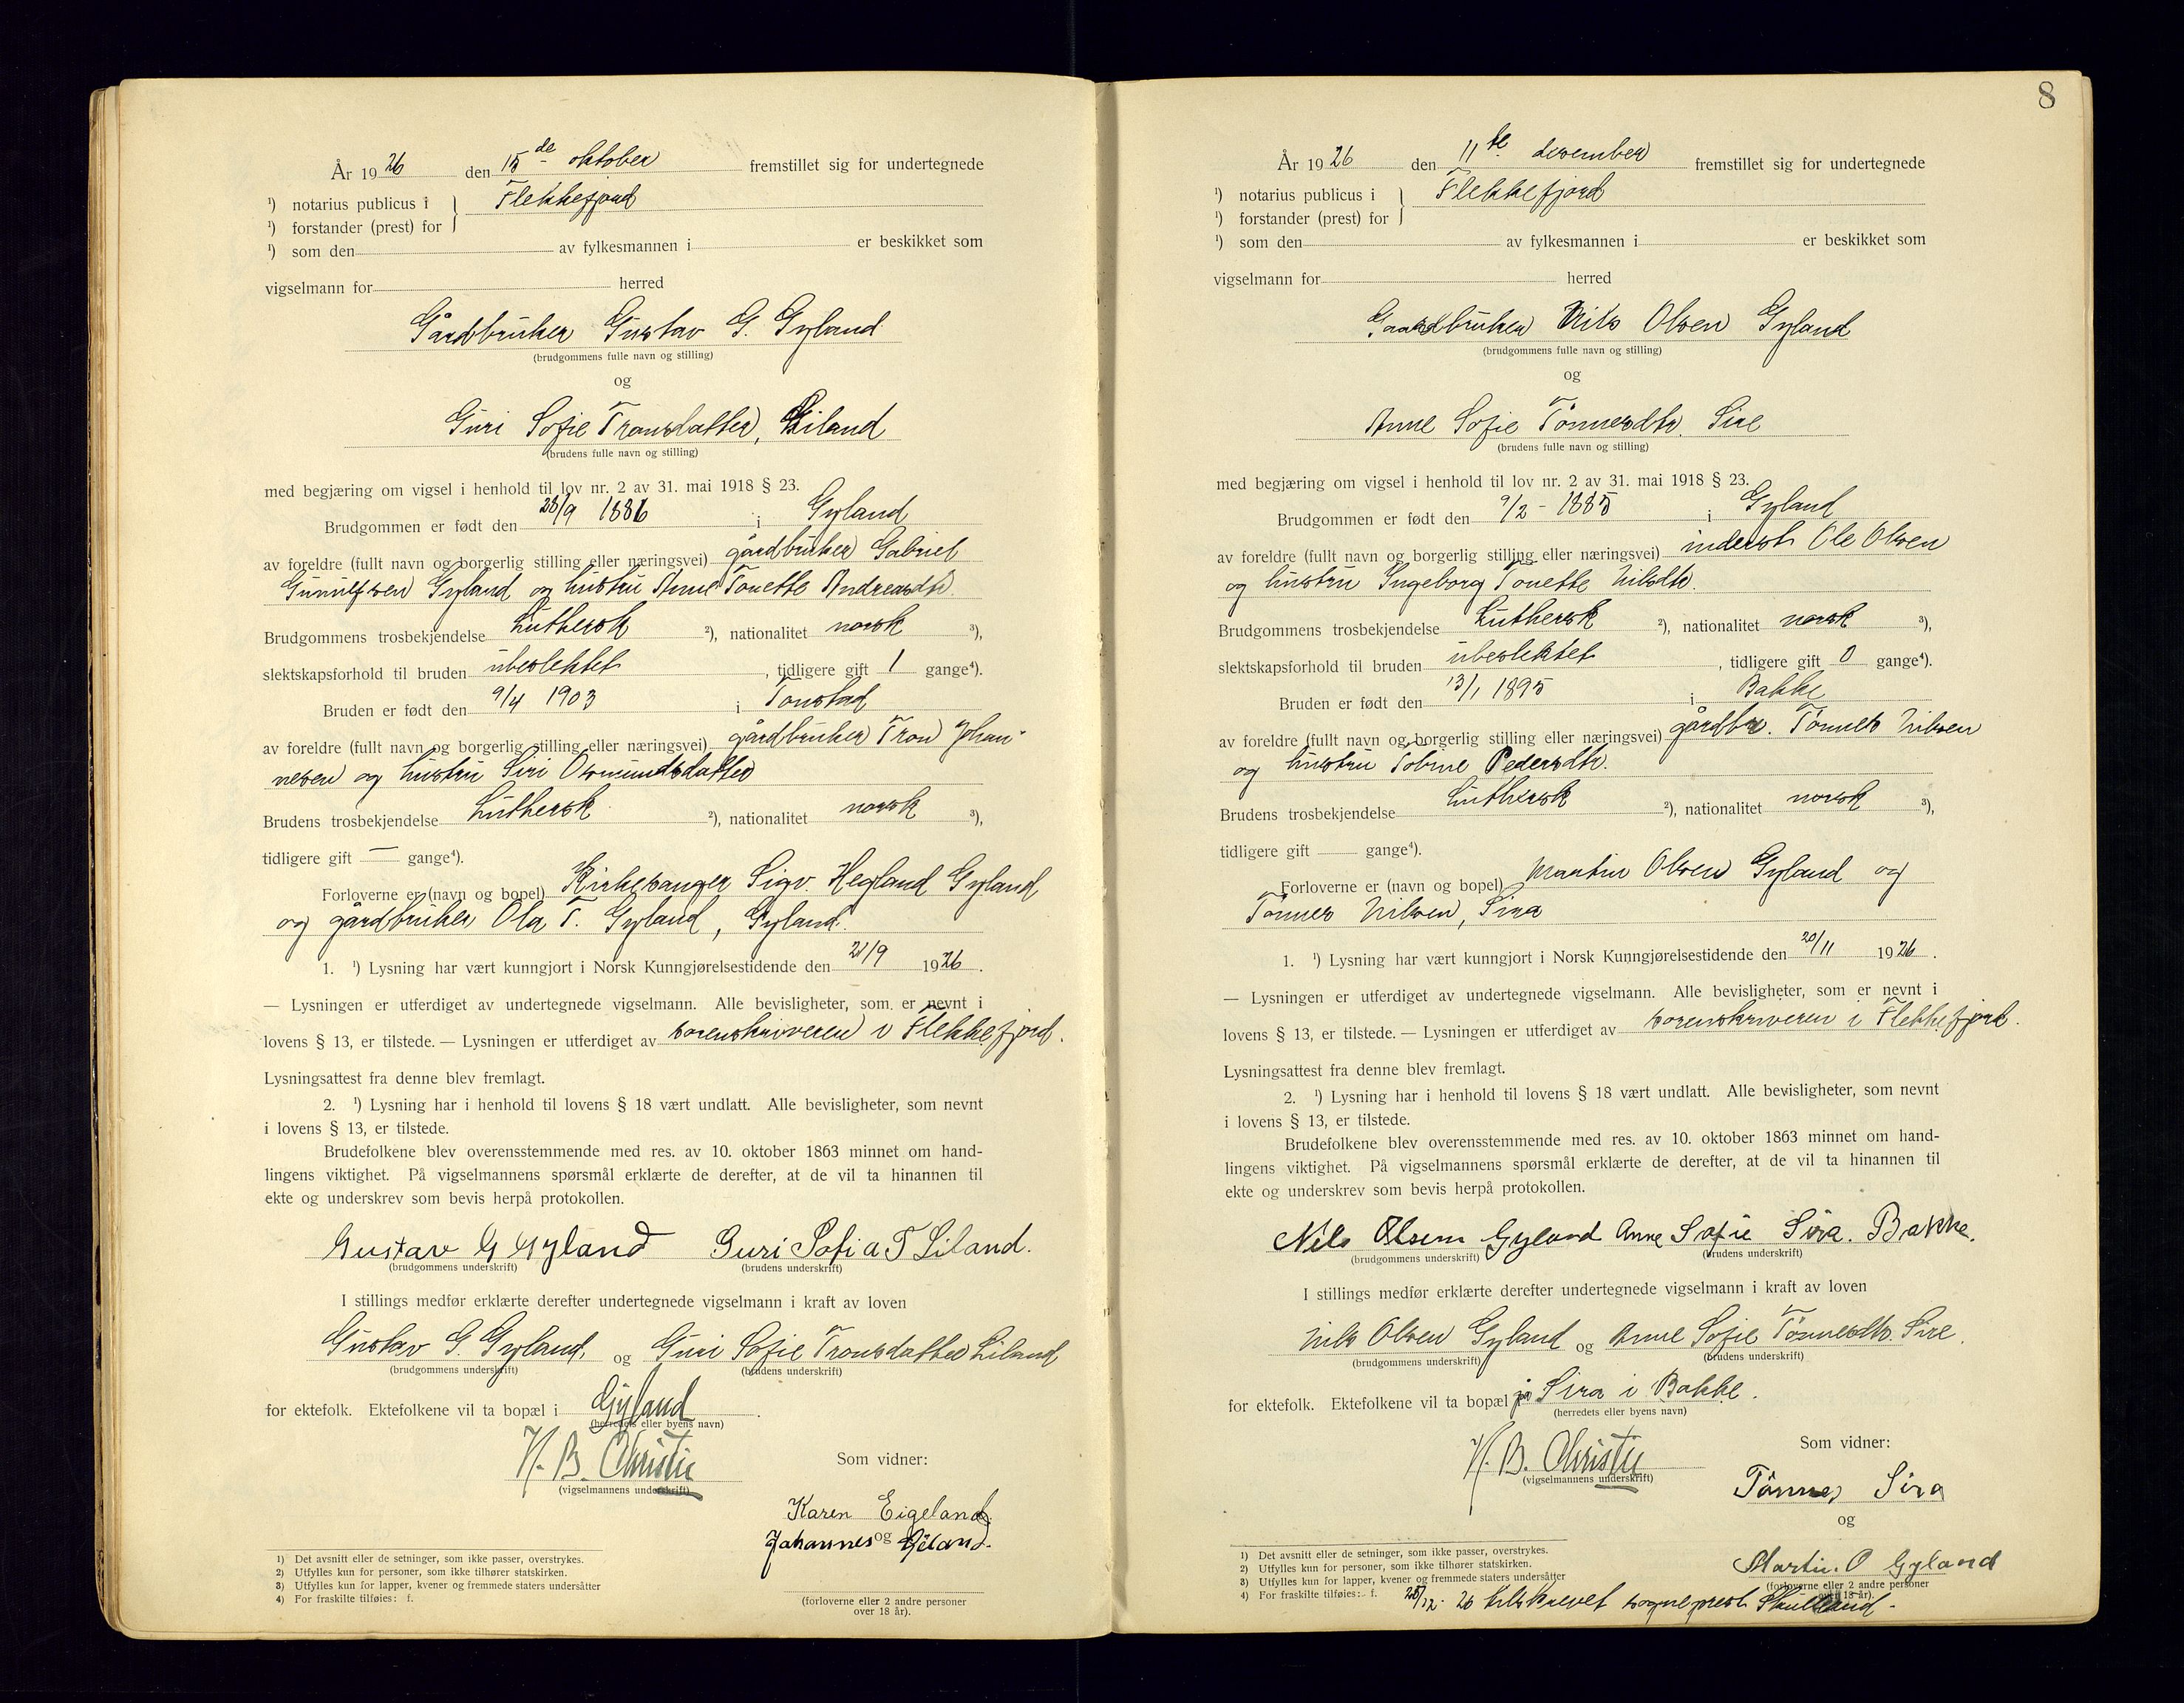 År 1926 den 15de oktober fremstillet sig for undertegnede
¹) notarius publicus i } Flekkefjord
¹) forstander (prest) for
¹) som den av fylkesmannen i er beskikket som
vigselmann for herred
Gårdbruker Gustav G. Gyland
(brudgommens fulle navn og stilling)
og
Guri Sofie Tronsdatter, Liland
(brudens fulle navn og stilling)
med begjæring om vigsel i henhold til lov nr. 2 av 31. mai 1918 § 23.
Brudgommen er født den 28/9 1886 i Gyland
av foreldre (fullt navn og borgerlig stilling eller næringsvei) gårdbruker Gabriel
Gunulfsen Gyland og hustru Anne Tonette Andreasdtr.
Brudgommens trosbekjendelse Luthersk ²), nationalitet norsk ³),
slektskapsforhold til bruden ubeslektet , tidligere gift 1 gange⁴).
Bruden er født den 9/4 1903 i Tonstad
av foreldre (fullt navn og borgerlig stilling eller næringsvei) gårdbruker Tron Johan-
nesen og hustru Siri Osmundsdatter
Brudens trosbekjendelse Luthersk ²), nationalitet norsk ³),
tidligere gift — gange⁴).
Forloverne er (navn og bopel) Kirkesanger Sigv. Hegland Gyland
og gårdbruker Ola T. Gyland, Gyland.
1. ¹) Lysning har vært kunngjort i Norsk Kunngjørelsestidende den 21/9 1926.
— Lysningen er utferdiget av undertegnede vigselmann. Alle bevisligheter, som er nevnt i
lovens § 13, er tilstede. — Lysningen er utferdiget av sorenskriveren i Flekkefjord.
Lysningsattest fra denne blev fremlagt.
2. ¹) Lysning har i henhold til lovens § 18 vært undlatt. Alle bevisligheter, som nevnt
i lovens § 13, er tilstede.
Brudefolkene blev overensstemmende med res. av 10. oktober 1863 minnet om hand-
lingens viktighet. På vigselmannens spørsmål erklærte de derefter, at de vil ta hinannen til
ekte og underskrev som bevis herpå protokollen.
Gustav G Gyland Guri Sofia T Liland.
(brudgommens underskrift) (brudens underskrift)
I stillings medfør erklærte derefter undertegnede vigselmann i kraft av loven
Gustav G. Gyland, og Guri Sofie Tronsdatter Liland
(brudgommens underskrift) (brudens underskrift)
for ektefolk. Ektefolkene vil ta bopæl i Gyland.
(herredets eller byens navn)
H. B. Christie
(vigselmannens underskrift)
Som vidner:
Karen Eigeland
Johannes og
1) Det avsnitt eller de setninger, som ikke passer, overstrykes.
2) Utfylles kun for personer, som ikke tilhører statskirken.
3) Utfylles kun for lapper, kvener og fremmede staters undersåtter
4) For fraskilte tilføies: f.
(forloverne eller 2 andre personer
over 18 år).
8
År 1926 den 11te desember fremstillet sig for undertegnede
¹) notarius publicus i } Flekkefjord
¹) forstander (prest) for
¹) som den av fylkesmannen i er beskikket som
vigselmann for herred
Gaardbruker Nils Olsen Gyland
(brudgommens fulle navn og stilling)
og
Anne Sofie Tønnesdtr. Sire
(brudens fulle navn og stilling)
med begjæring om vigsel i henhold til lov nr. 2 av 31. mai 1918 § 23.
Brudgommen er født den 9/2 - 1885 i Gyland
av foreldre (fullt navn og borgerlig stilling eller næringsvei) inderst Ole Olsen
og hustru Ingeborg Tonette Nilsdtr.
Brudgommens trosbekjendelse Luthersk ²), nationalitet norsk ³),
slektskapsforhold til bruden ubeslektet , tidligere gift 0 gange⁴).
Bruden er født den 13/1 1895 i Bakke
av foreldre (fullt navn og borgerlig stilling eller næringsvei) gårdbr. Tønnes Nilsen
og hustru Tobine Pedersdtr.
Brudens trosbekjendelse Luthersk ²), nationalitet norsk ³),
tidligere gift gange⁴).
Forloverne er (navn og bopel) Martin Olsen Gyland og
Tønnes Nilsen, Sira
1. ¹) Lysning har vært kunngjort i Norsk Kunngjørelsestidende den 20/11 1926.
— Lysningen er utferdiget av undertegnede vigselmann. Alle bevisligheter, som er nevnt i
lovens § 13, er tilstede. — Lysningen er utferdiget av sorenskriveren i Flekkefjord.
Lysningsattest fra denne blev fremlagt.
2. ¹) Lysning har i henhold til lovens § 18 vært undlatt. Alle bevisligheter, som nevnt
i lovens § 13, er tilstede.
Brudefolkene blev overensstemmende med res. av 10. oktober 1863 minnet om hand-
lingens viktighet. På vigselmannens spørsmål erklærte de derefter, at de vil ta hinannen til
ekte og underskrev som bevis herpå protokollen.
Nils Olsen Gyland Anne Sofie Sira. Bakke.
(brudgommens underskrift) (brudens underskrift)
I stillings medfør erklærte derefter undertegnede vigselmann i kraft av loven
Nils Olsen Gyland og Anne Sofie Tønnesdtr. Sire.
(brudgommens underskrift) (brudens underskrift)
for ektefolk. Ektefolkene vil ta bopæl på Sira i Bakke.
(herredets eller byens navn)
H. B. Christie
(vigselmannens underskrift)
Som vidner:
Tønnes Sira
og
Martin O Gyland
(forloverne eller 2 andre personer
over 18 år).
1) Det avsnitt eller de setninger, som ikke passer, overstrykes.
2) Utfylles kun for personer, som ikke tilhører statskirken.
3) Utfylles kun for lapper, kvener og fremmede staters undersåtter
4) For fraskilte tilføies: f.
28/12- 26 tilskrevet sogneprest